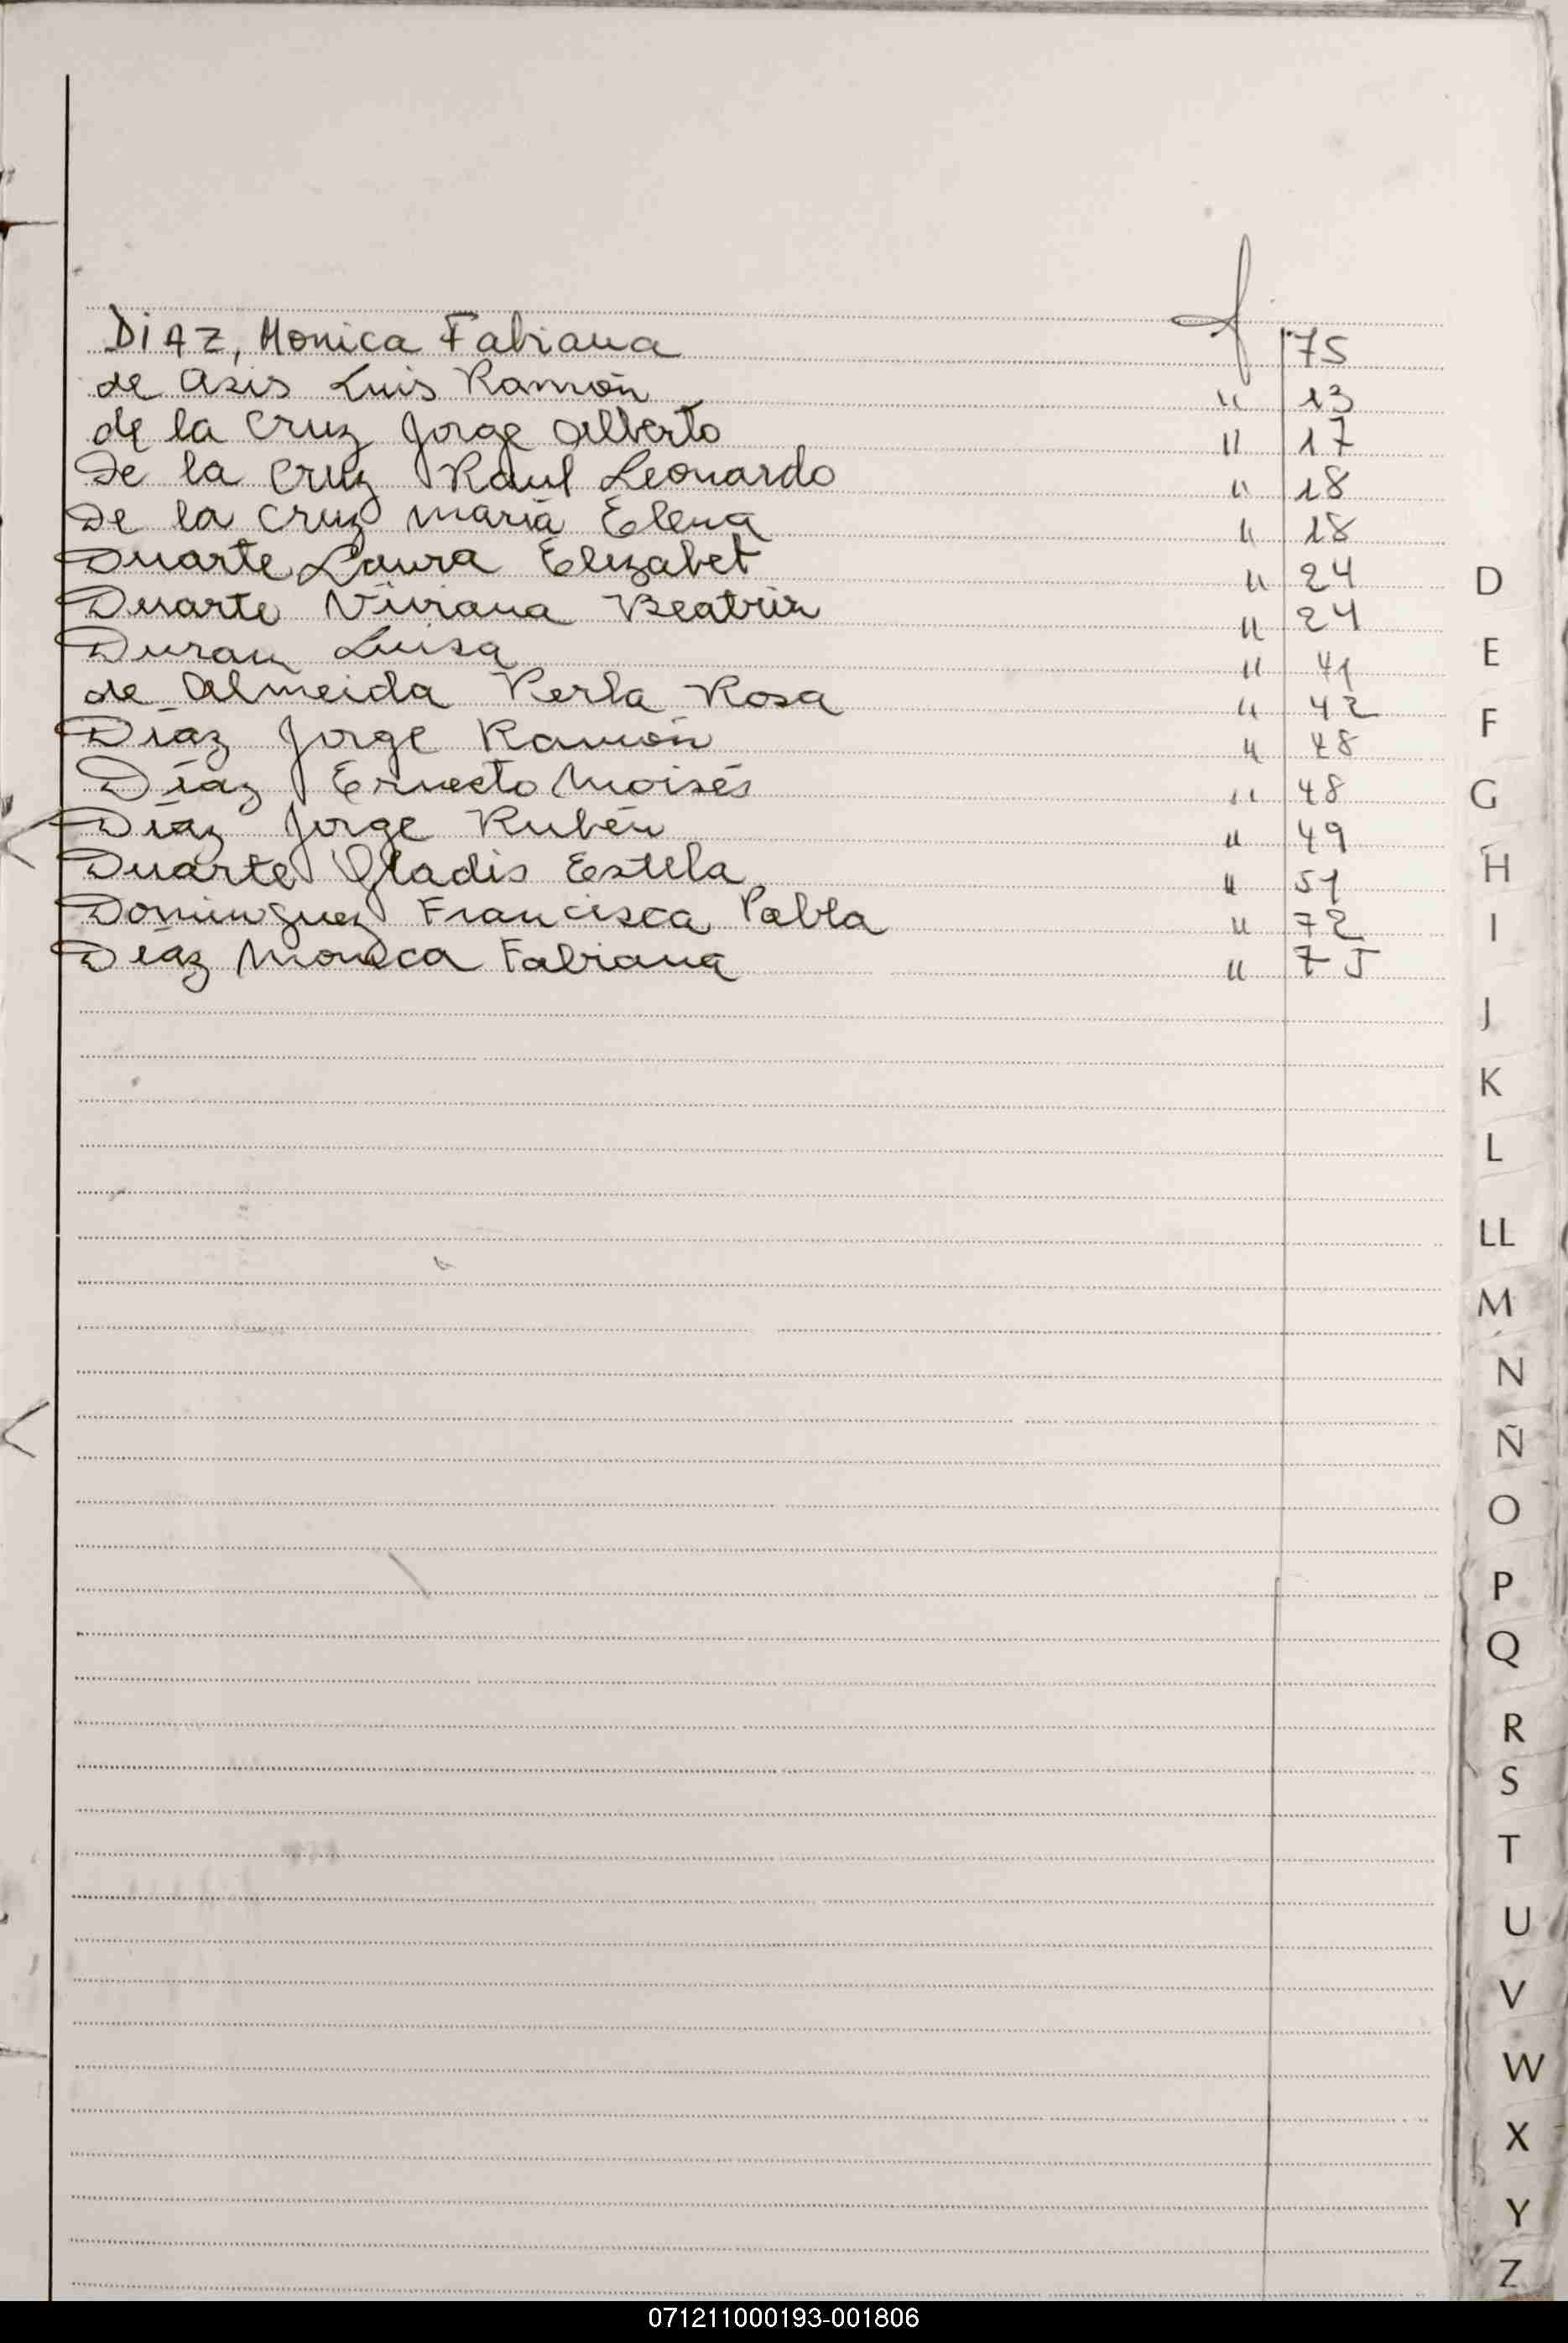 DiAZ, Monica Fabiana f 75
de Asis Luis Ramón " 13
de la Cruz Jorge Alberto " 17
De la Cruz Raul Leonardo " 18
De la Cruz maria Elena " 18
Duarte Laura Elizabet " 24
Duarte Viviana Beatriz " 24
Duran Luisa " 41
de Almeida Perla Rosa " 42
Diaz Jorge Ramón " 48
Díaz Ernesto Moisés " 48
Díaz Jorge Rubén " 49
Duarte Gladis Estela " 51
Dominguez Francisca Pabla " 72
Diaz Monica Fabiana " 75
D
E
F
G
H
I
J
K
L
LL
M
N
Ñ
O
P
Q
R
S
T
U
V
W
X
Y
Z
071211000193-001806